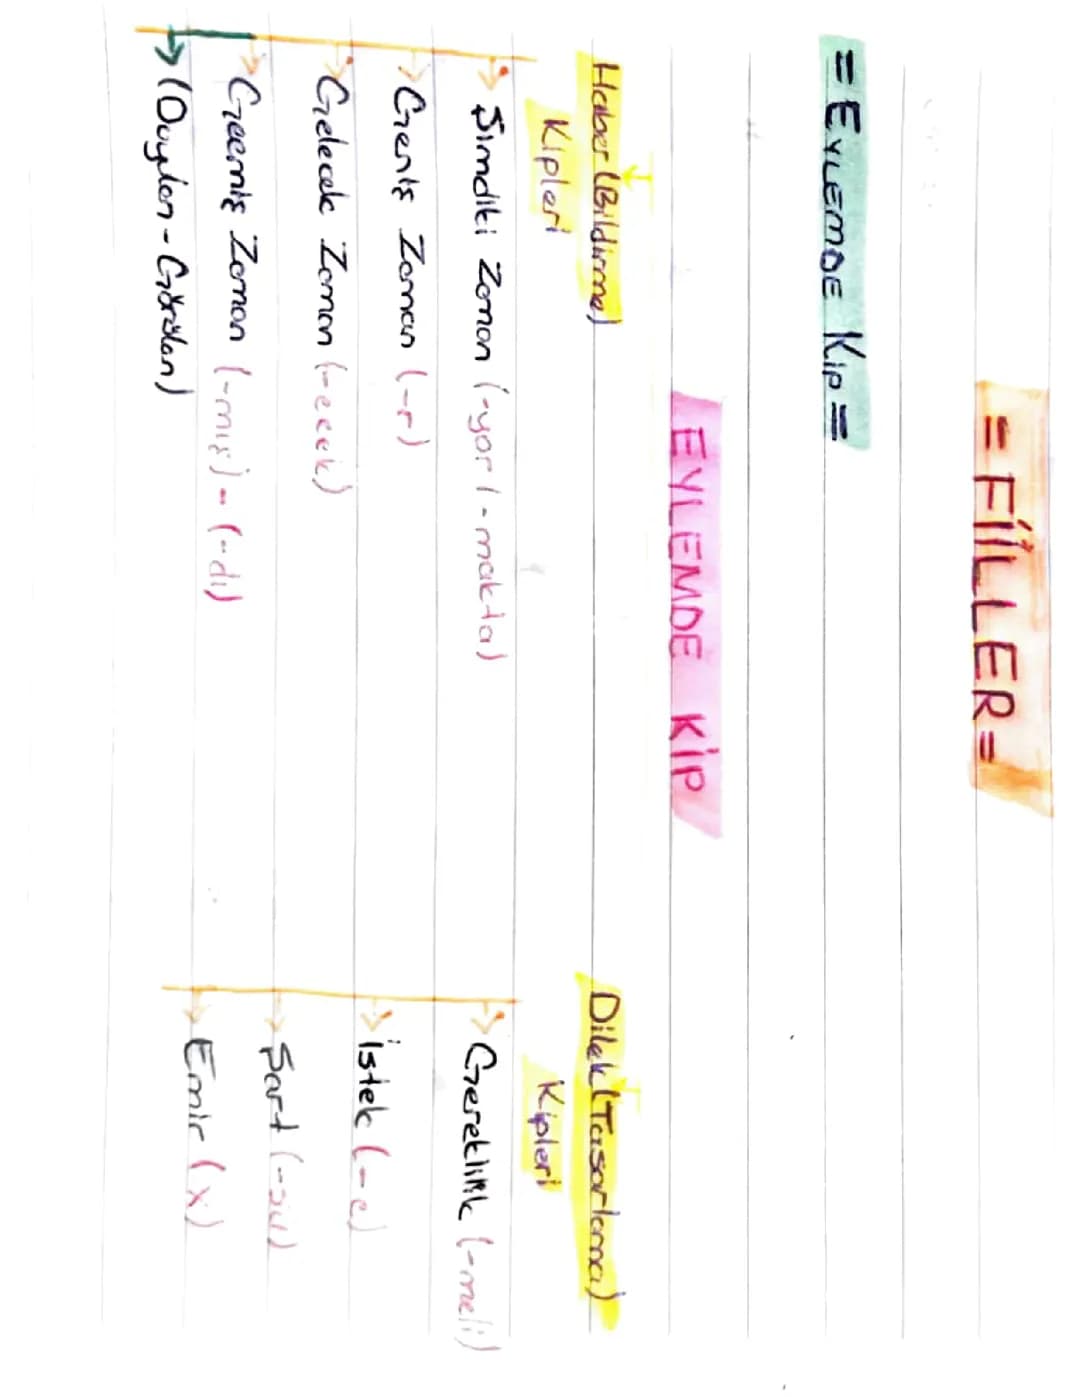 = FİİLLER =
= EYLEMDE Kip =
EYLEMDE KİP
Haber (Bildirme)
Kipleri
Şimdiki Zaman (-yor / -makta)
Geniş Zaman (-r)
Gelecek Zaman (-ecek)
Geçmiş Zaman (-mış) - (-dı)
(Duyulan - Görülen)
Dilek (Tasarlama)
Kipleri
Gereklilik (-meli)
İstek (-e)
Şart
Emir (x)